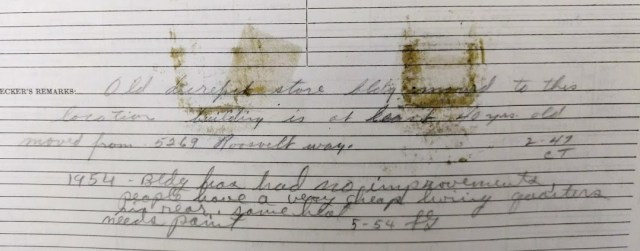 ECKER'S REMARKS: Old decrepit store bldg moved to this
location building is at least 40 yrs old
moved from 5269 Roosevelt way. 2-49
CT
1954 - Bldg has had no improvements,
people have a very cheap living quarters
in rear, some heat
needs paint 5-54